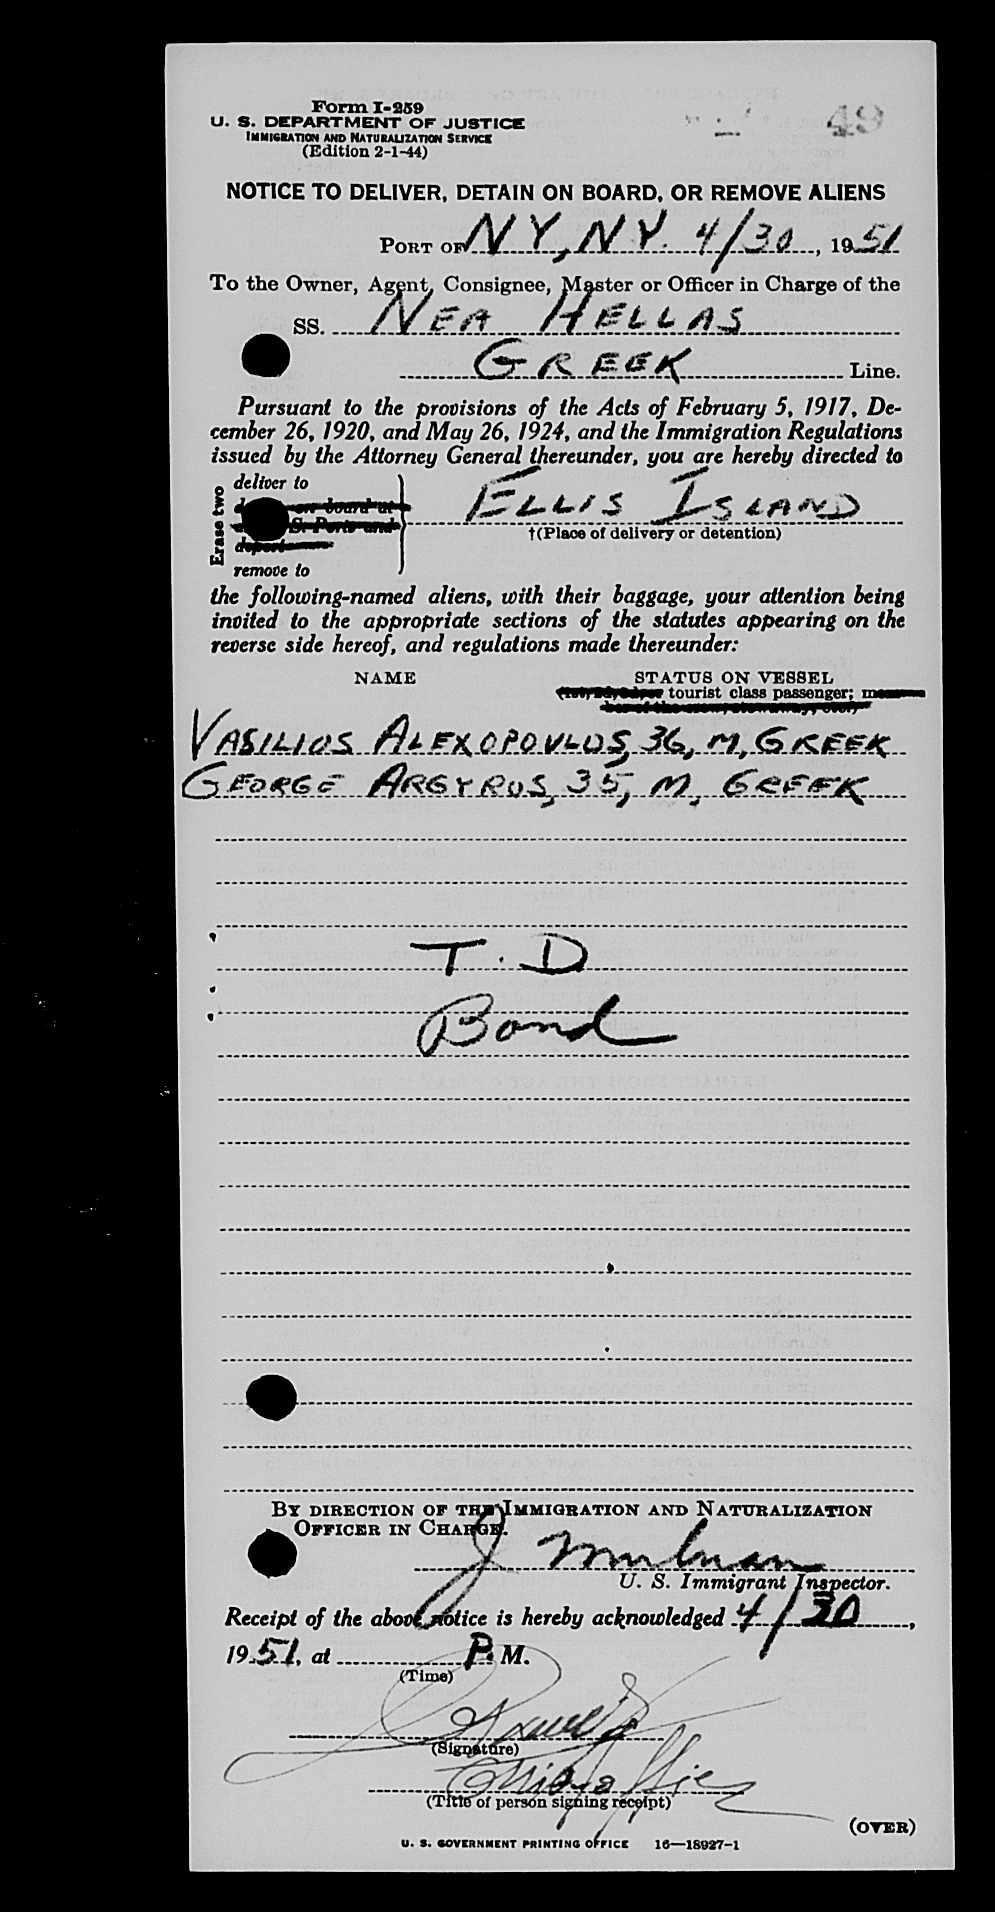 49
Form I-259
U. S. DEPARTMENT OF JUSTICE
IMMIGRATION AND NATURALIZATION SERVICE
(Edition 2-1-44)
NOTICE TO DELIVER, DETAIN ON BOARD, OR REMOVE ALIENS
PORT OF NY, NY. 4/30, 1951
To the Owner, Agent, Consignee, Master or Officer in Charge of the
SS. NEA HELLAS
GREEK Line.
Pursuant to the provisions of the Acts of February 5, 1917, De-
cember 26, 1920, and May 26, 1924, and the Immigration Regulations
issued by the Attorney General thereunder, you are hereby directed to
Erase two
deliver to
on board at
S. Ports and
deport
remove to
ELLIS ISLAND
†(Place of delivery or detention)
the following-named aliens, with their baggage, your attention being
invited to the appropriate sections of the statutes appearing on the
reverse side hereof, and regulations made thereunder:
NAME STATUS ON VESSEL
tourist class passenger;
VASILIOS ALEXOPOVLOS, 36, M, GREEK
GEORGE ARGYROS, 35, M, GREEK
T. D
Bond
BY DIRECTION OF THE IMMIGRATION AND NATURALIZATION
OFFICER IN CHARGE.
J
U. S. Immigrant Inspector.
Receipt of the above notice is hereby acknowledged 4/30,
1951, at P. M.
(Time)
(Signature)
(Title of person signing receipt)
(OVER)
U. S. GOVERNMENT PRINTING OFFICE 16—18927-1